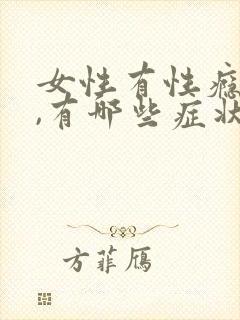 女性有性瘾
,有哪些症状
方菲雁